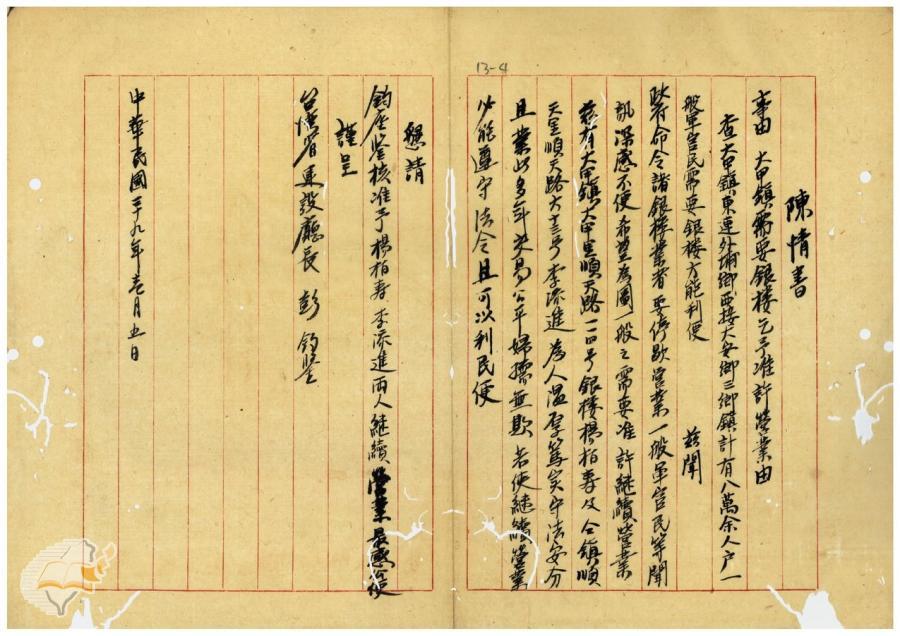 13-4
陳情書
事由 大甲鎮需要銀楼乞予准許營業由
查大甲鎮東連外埔鄉西接大安鄉三鄉鎮計有八萬余人户一
般軍官民需要銀楼方能利便 茲聞
政府命令諸銀楼業者要停歇營業一般軍官民等聞
訊深感不便希望為圖一般之需要准許繼續營業
茲有大甲鎮大甲里順天路一一四号銀楼楊柏壽及仝鎮順
天里順天路六十三号李添進為人温厚篤实守法安分
且業此多年交易公平婦孺無欺若使繼續營業
必能遵守法令且可以利民便
懇請
鈞座鉴核准予楊柏壽、李添進兩人繼續營業最感公便
謹呈
台灣省建設廳長 彭 鈞鉴
中華民國三十九年壱月五日